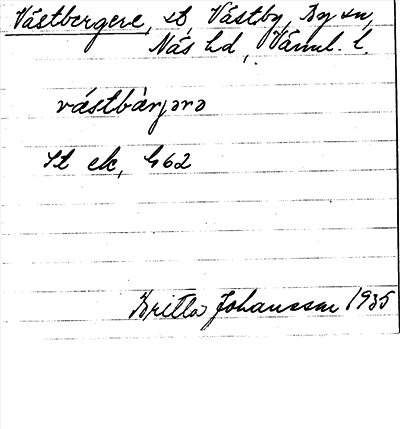 Västbergere, st, Västby, By sn,
Näs hd, Värml. l.
västbärjərə
St ek, G62
Britta Johansson 1935